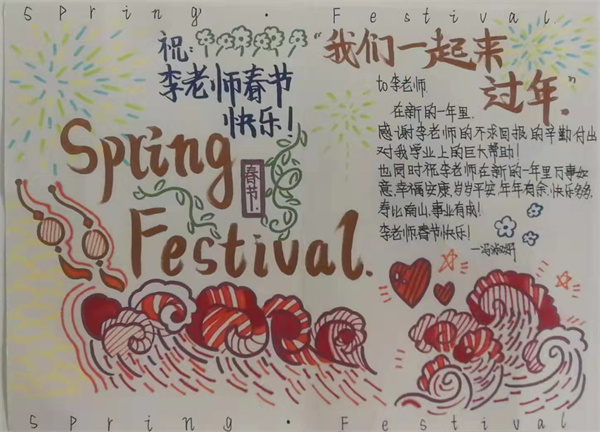 Spring · Festival
祝:
李老师春节
快乐!
Spring
春节
Festival.
"我们一起来
过年."
to李老师
在新的一年里.
感谢李老师的不求回报的辛勤付出
对我学业上的巨大帮助!
也同时祝李老师在新的一年里万事如
意.幸福安康.岁岁平安.年年有余.快乐多多,
寿比南山,事业有成!
李老师春节快乐!
Spring · Festival